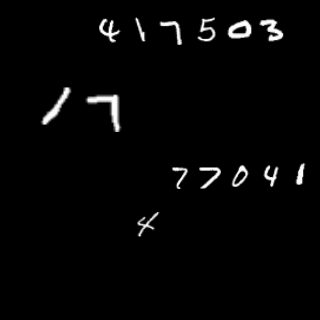 417503
17
77041
4